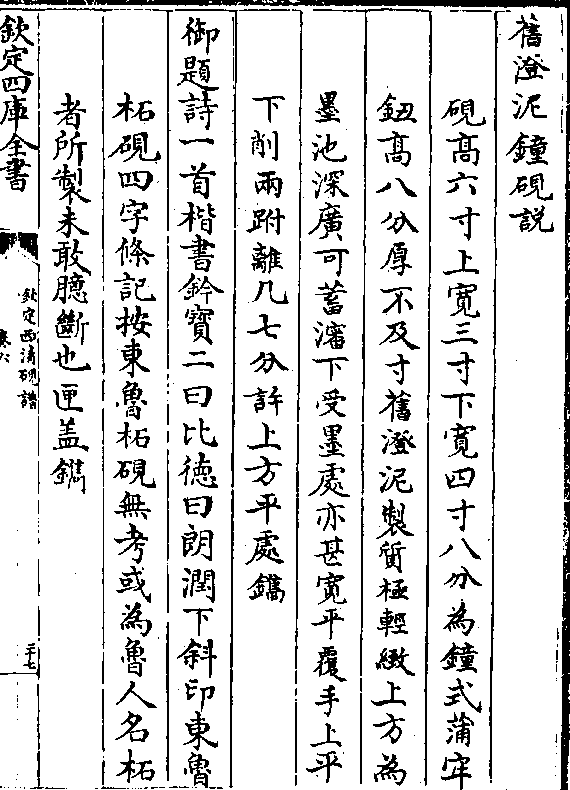 舊澄泥鐘硯説
硯高六寸上寛三寸下寛四寸八分為鐘式蒲牢
鈕高八分厚不及寸舊澄泥製質極輕緻上方為
墨池深廣可蓄瀋下受墨處亦甚寛平覆手上平
下削兩跗離几七分許上方平處鐫
御題詩一首楷書鈐寳二曰比徳曰朗潤下斜印東魯
柘硯四字條記按東魯柘硯無考或為魯人名柘
者所製未敢臆斷也匣盖鐫
欽定四庫全書
欽定西清硯譜
卷六
三十七